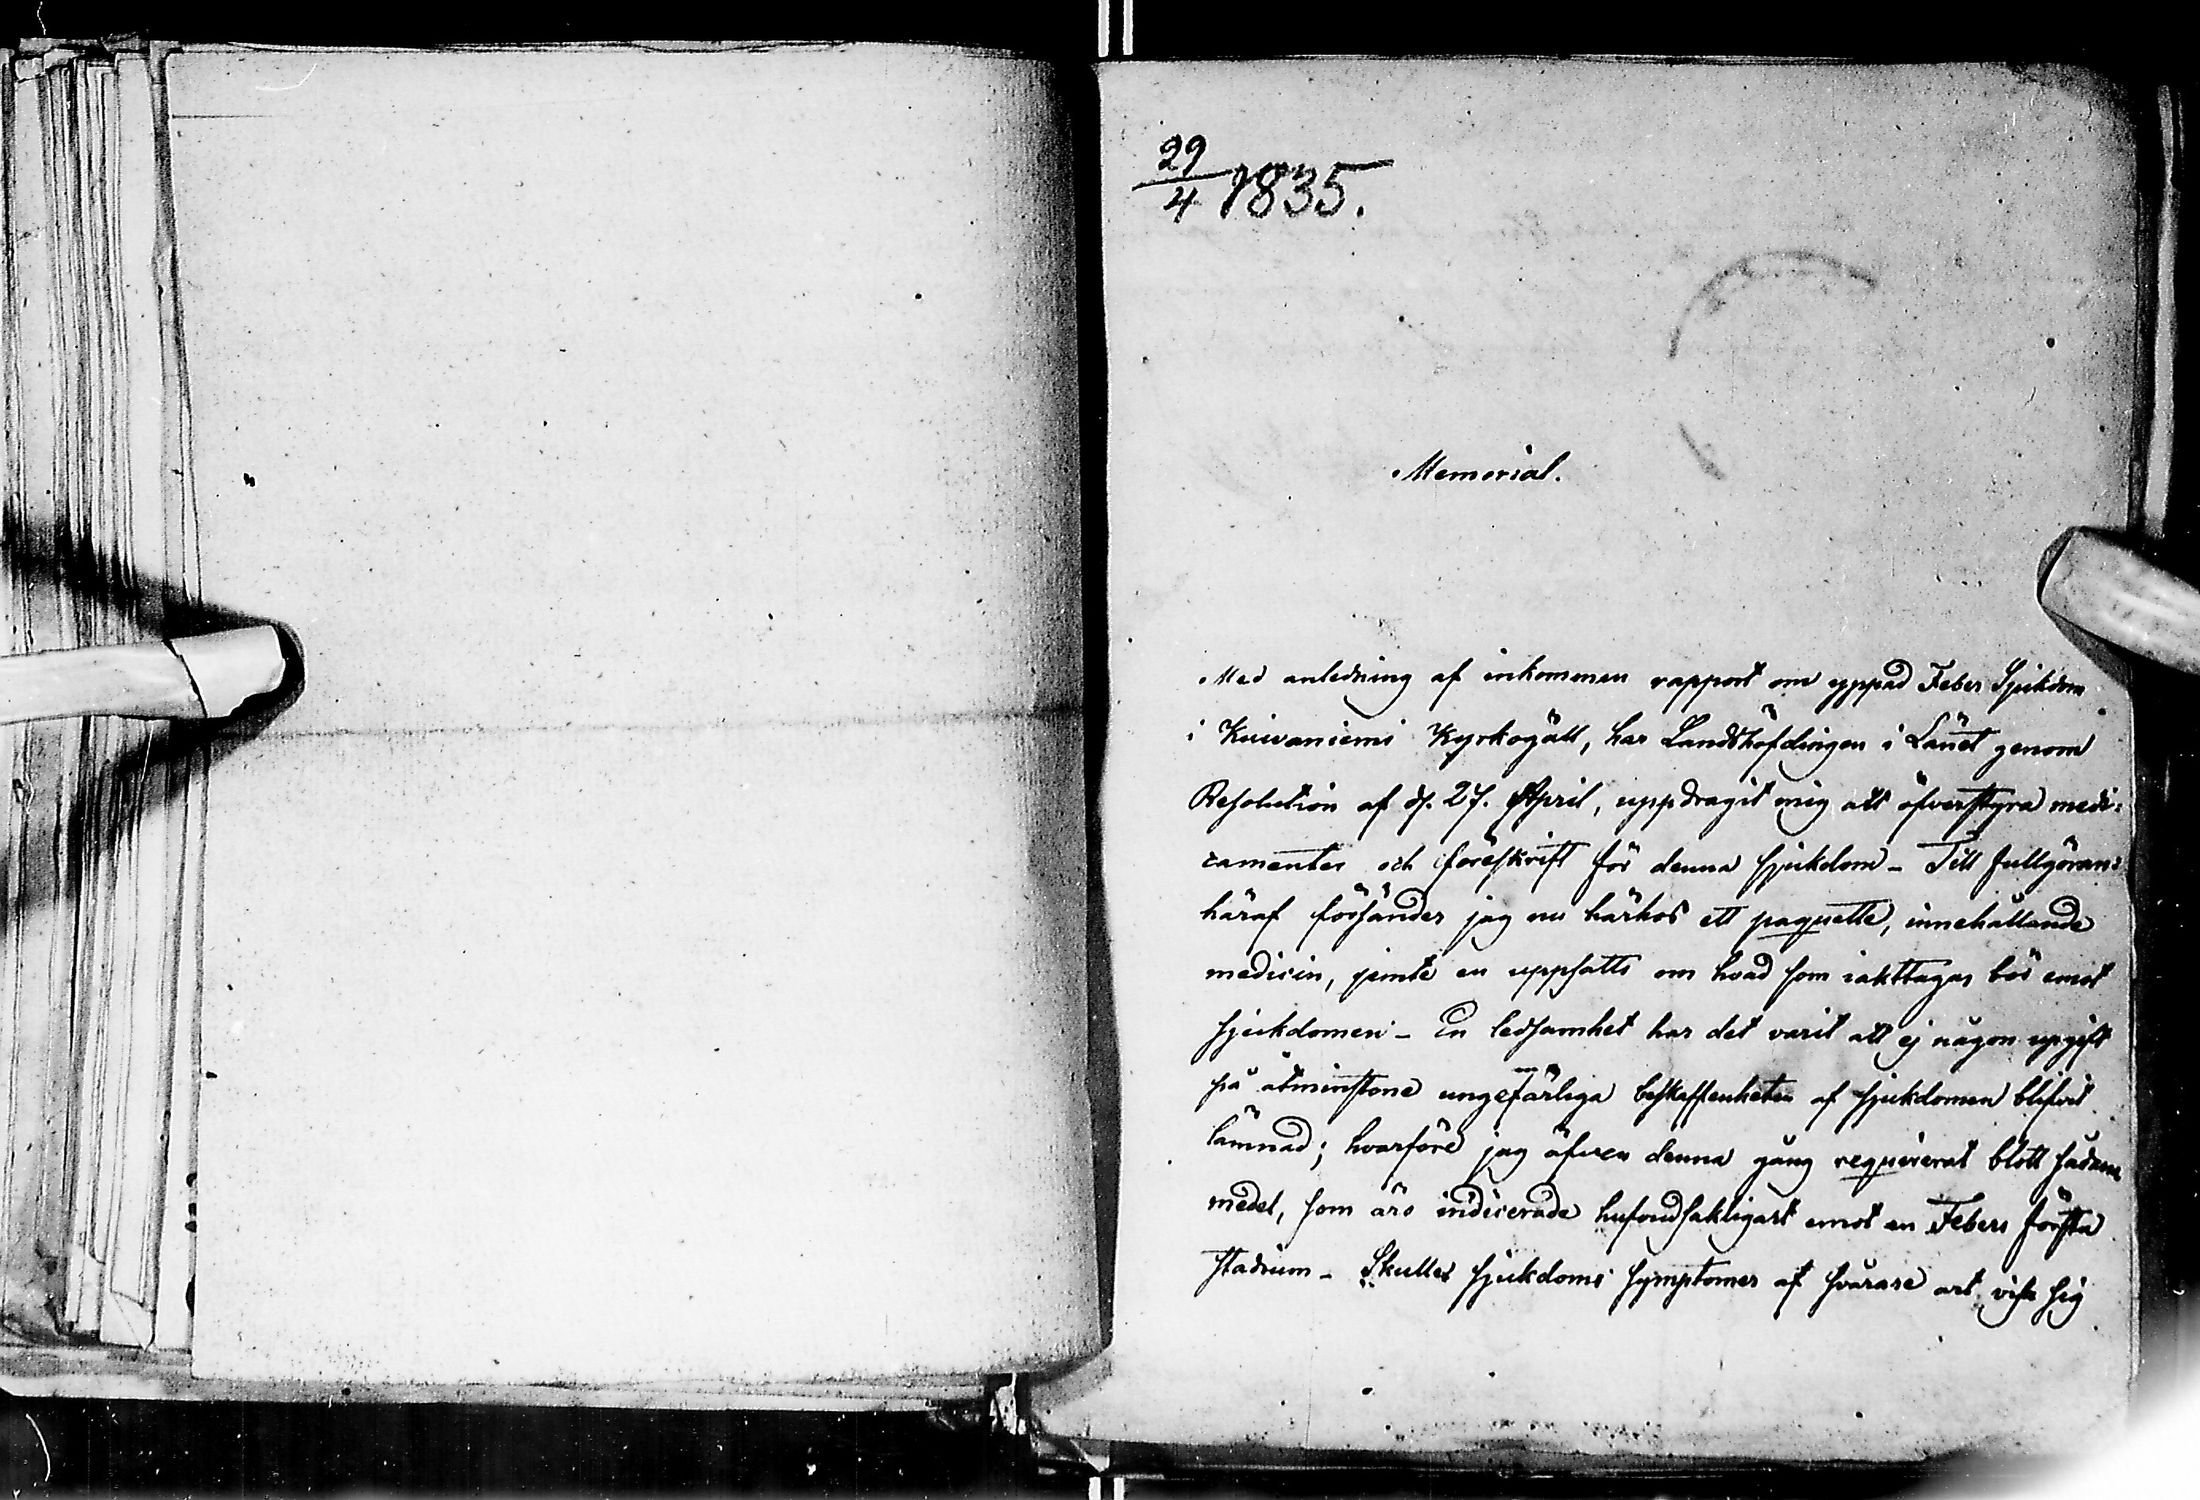 29/4 1835.
Memorial.
Med anledning af inkommen rapport om yppad Feber Sjukdom
i Kuivaniemi Kyrkogäll, har Landshöfdingen i Länet genom
Resolution af d. 27. April, uppdragit mig att öfverstyra medi=
camenter och föreskrift för denna sjukdom - Till fullgöran=
häraf försänder jag nu härhos ett paquette, innehållande
medicin, jemte en uppsatts om hvad som iakttagas bör emot
sjukdomen - En ledsamhet har det varit att ej någon upgift
på åtminstone ungefärliga beskaffenheten af sjukdomen blifvit
lämnad; hvarföre jag äfven denna gång requirerat blott sådane
medel, som äro indicerade hufvudsakligast emot en Febers första
stadium - Skulle sjukdoms symptomer af svårare art visa sig